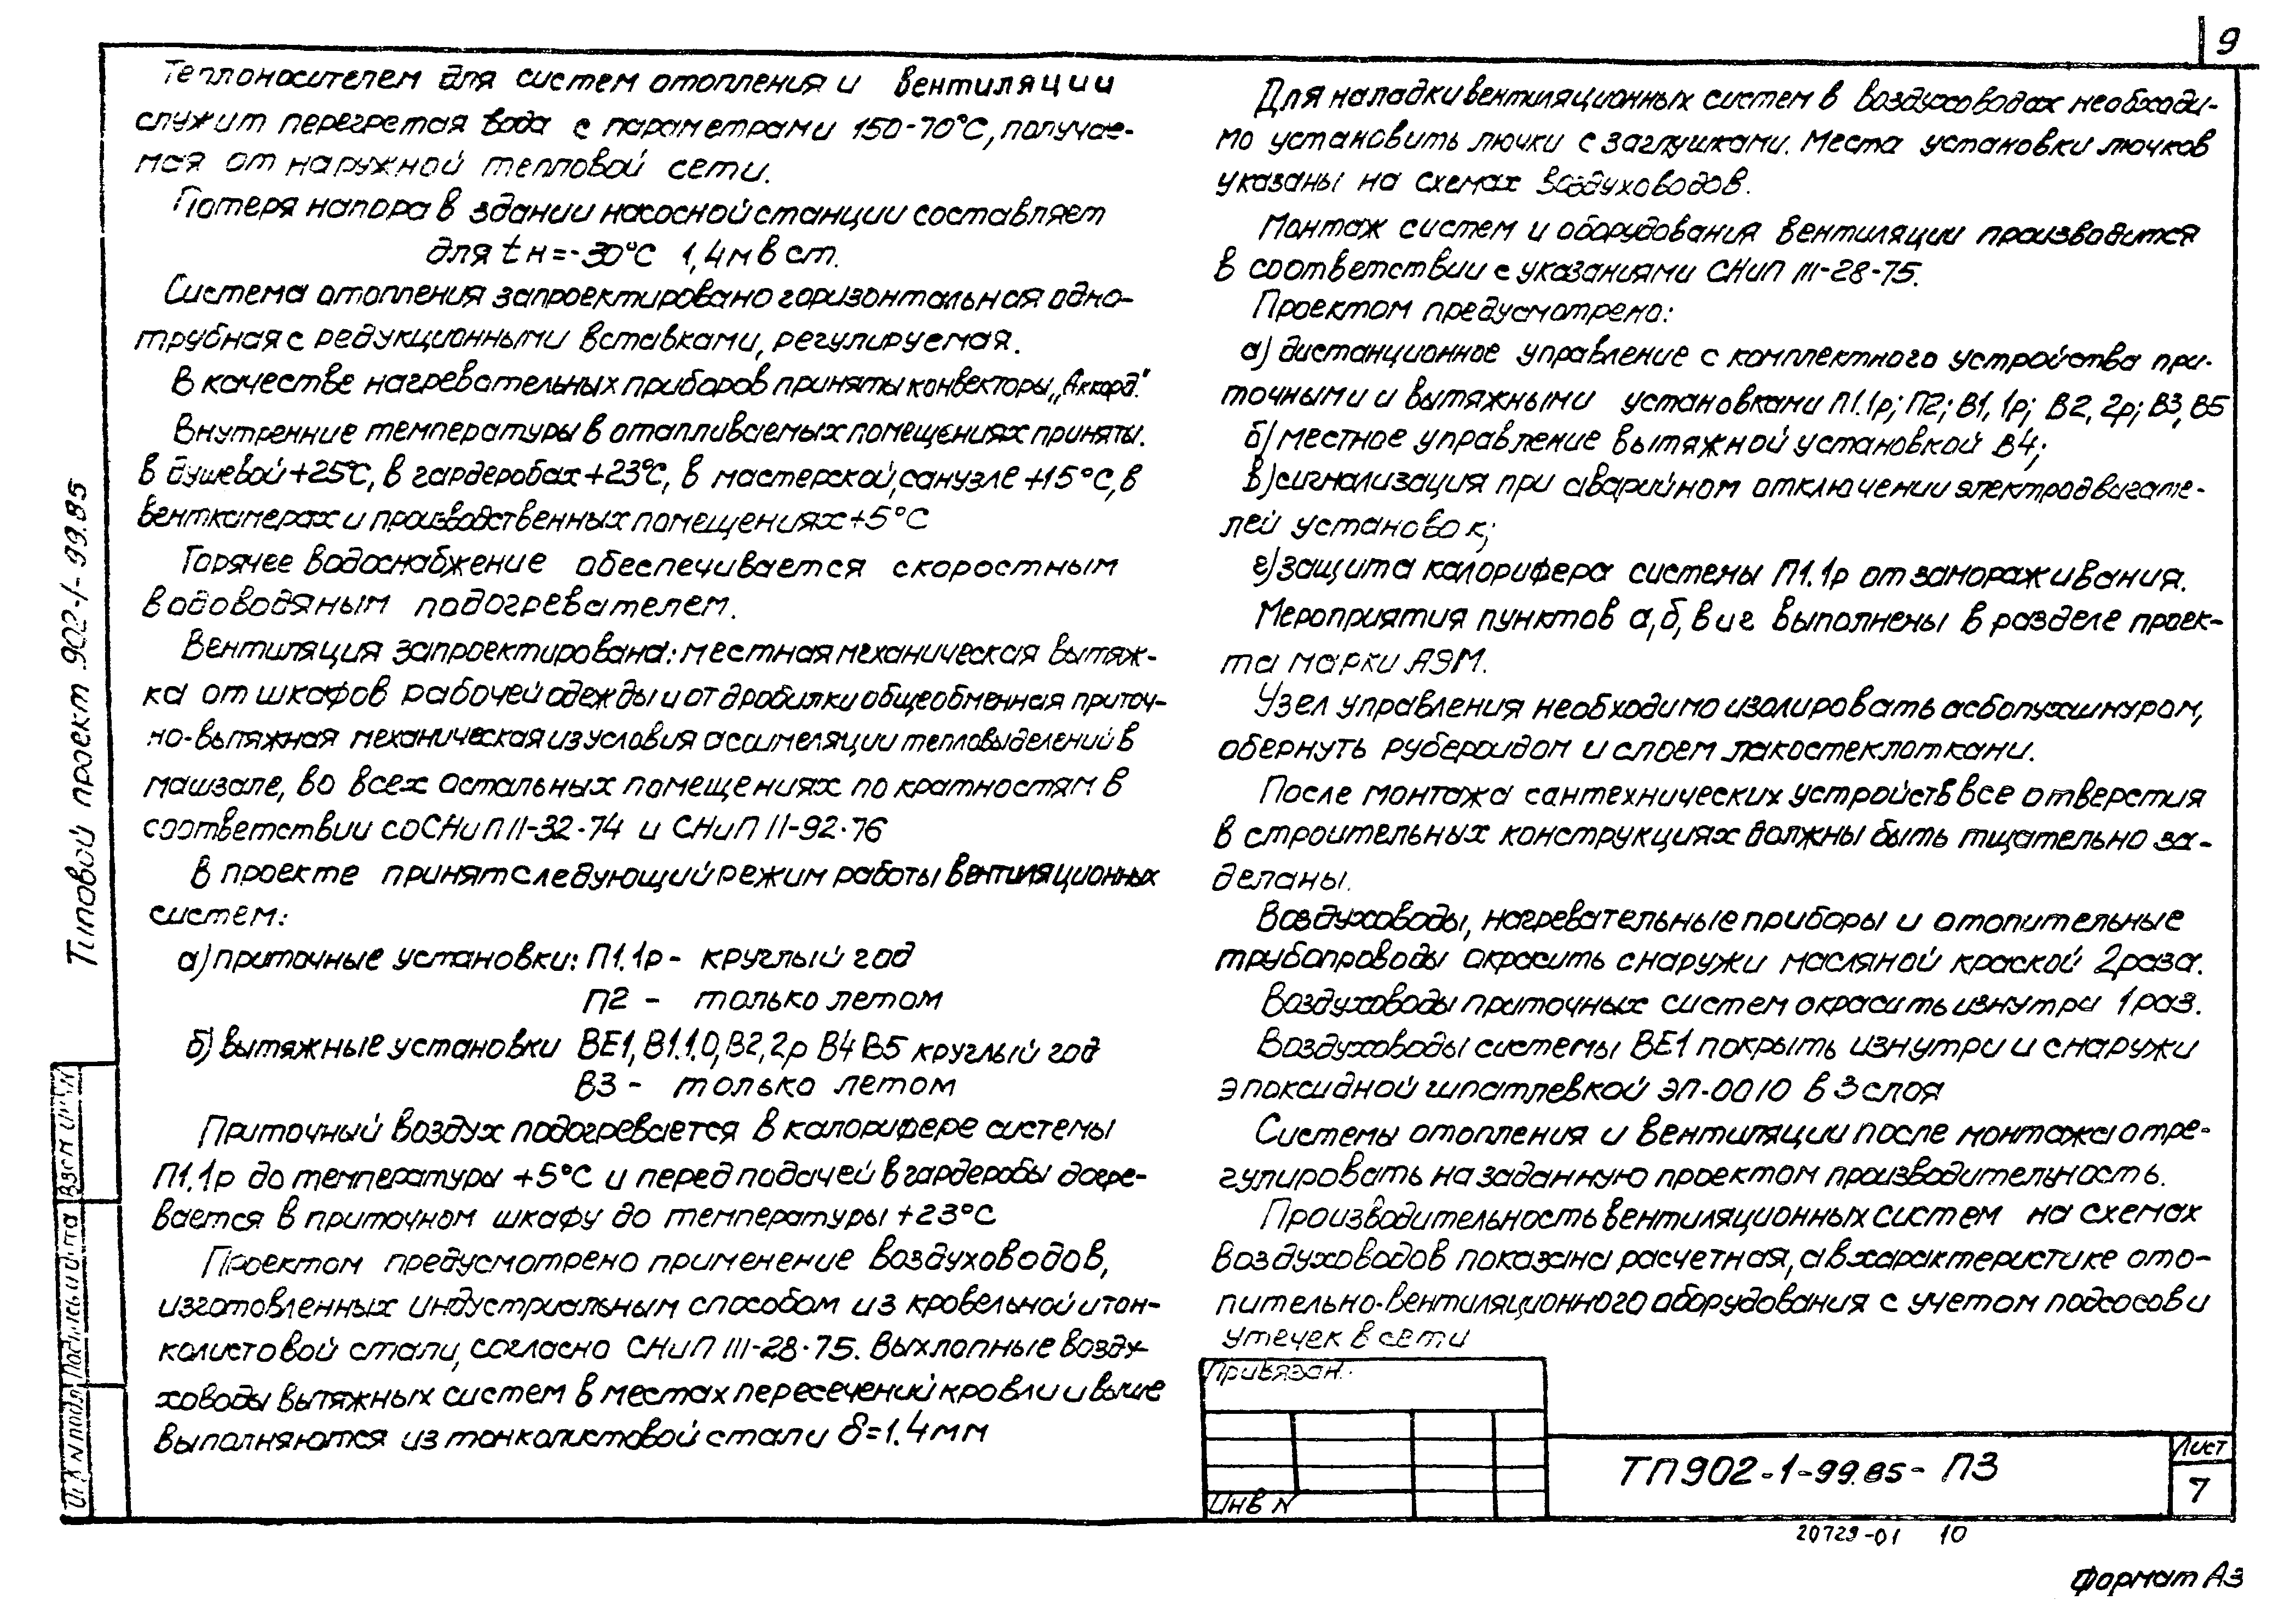 9
Теплоносителем для систем отопления и вентиляции
служит перегретая вода с параметрами 150-70°С, получае-
мая от наружной тепловой сети.
Потеря напора в здании насосной станции составляет
для tн=-30°С 1,4м в ст.
Система отопления запроектировано горизонтальная одно-
трубная с редукционными вставками, регулируемая.
В качестве нагревательных приборов приняты конвекторы „Аккорд".
Внутренние температуры в отапливаемых помещениях приняты.
в душевой +25°С, в гардеробах +23°С, в мастерской, санузле +15°С, в
венткамерах и производственных помещениях +5°С
Горячее водоснабжение обеспечивается скоростным
водоводяным подогревателем.
Вентиляция запроектирована: местная механическая вытяж-
ка от шкафов рабочей одежды и от дробилки общеобменная приточ-
но-вытяжная механическая из условия ассимеляции тепловыделений в
машзале, во всех остальных помещениях по кратностям в
соответствии со СНиП II-32-74 и СНиП II-92-76
В проекте принят следующий режим работы вентиляционных
систем:
а) приточные установки: П1.1р - круглый год
П2 - только летом
б) вытяжные установки ВЕ1, В1.1.0, В2, 2р В4 В5 круглый год
В3 - только летом
Приточный воздух подогревается в калорифере системы
П1.1р до температуры +5°С и перед подачей в гардеробы догре-
вается в приточном шкафу до температуры +23°С
Проектом предусмотрено применение воздуховодов,
изготовленных индустриальным способом из кровельной и тон-
колистовой стали, согласно СНиП III-28-75. Выхлопные возду-
ховоды вытяжных систем в местах пересечений кровли и выше
выполняются из тонколистовой стали δ=1.4мм
Для наладки вентиляционных систем в воздуховодах необходи-
мо установить лючки с заглушками. Места установки лючков
указаны на схемах воздуховодов.
Монтаж систем и оборудования вентиляции производится
в соответствии с указаниями СНиП III-28-75.
Проектом предусмотрено:
а) дистанционное управление с комплектного устройства при-
точными и вытяжными установками П1.1р; П2; В1, 1р; В2, 2р; В3, В5
б) местное управление вытяжной установкой В4;
в) сигнализация при аварийном отключении электродвигате-
лей установок;
г) защита калорифера системы П1.1р от замораживания.
Мероприятия пунктов а, б, в и г выполнены в разделе проек-
та марки АЭМ.
Узел управления необходимо изолировать асбопухшнуром,
обернуть рубероидом и слоем лакостеклоткани.
После монтажа сантехнических устройств все отверстия
в строительных конструкциях должны быть тщательно за-
деланы.
Воздуховоды, нагревательные приборы и отопительные
трубопроводы окрасить снаружи масляной краской 2 раза.
Воздуховоды приточных систем окрасить изнутри 1 раз.
Воздуховоды системы ВЕ1 покрыть изнутри и снаружи
эпоксидной шпатлевкой ЭП-0010 в 3 слоя
Системы отопления и вентиляции после монтажа отре-
гулировать на заданную проектом производительность.
Производительность вентиляционных систем на схемах
воздуховодов показана расчетная, а в характеристике ото-
пительно-вентиляционного оборудования с учетом подсосов и
утечек в сети
Типовой проект 902-1-99.85
Взам инв N
Подпись и дата
Инв N подл
Привязан
Инв N
ТП902-1-99.85- ПЗ
Лист
7
20729-01 10
Формат А3